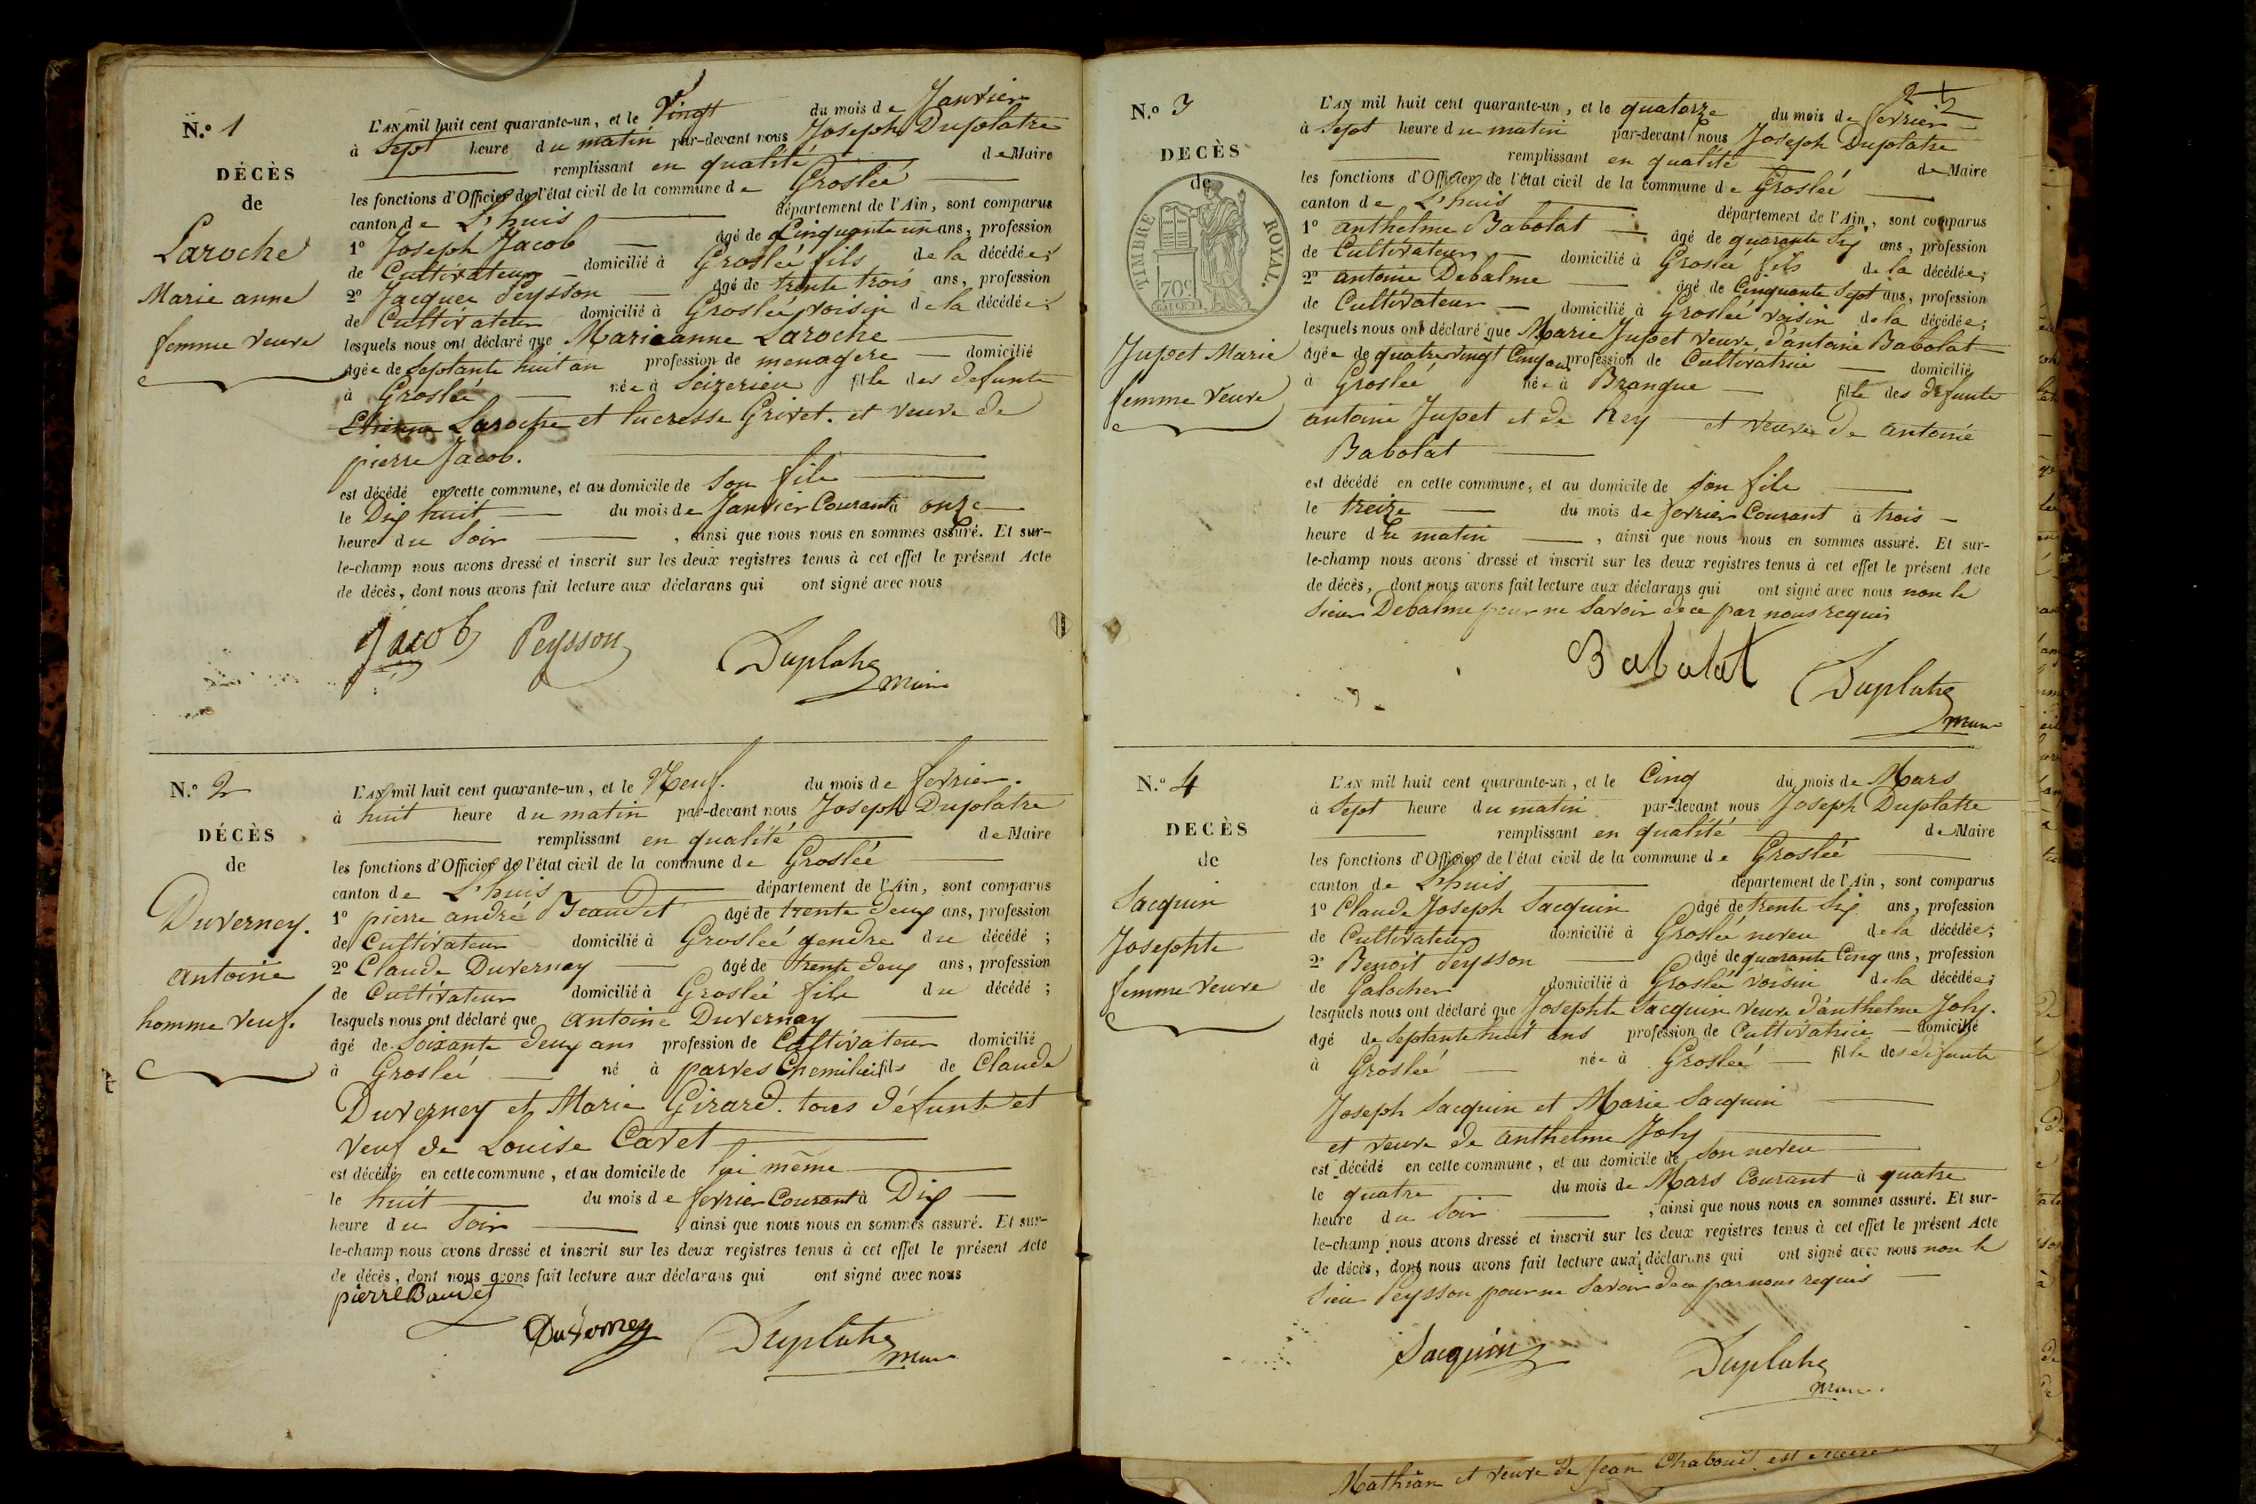 N.º 1
DÉCÈS
de
Laroche
Marie anne
femme veuve
L'AN mil huit cent quarante-un, et le Vingt du mois de Janvier
à Sept heure du matin par-devant nous Joseph Duplatre
remplissant en qualité de Maire
les fonctions d'Officier de l'état civil de la commune de Groslée
canton de L'huis département de l'Ain, sont comparus
1º Joseph Jacob âgé de Cinquante un ans, profession
de Cultivateur domicilié à Groslée fils de la décédée;
2º Jacques Peysson âgé de trente trois ans, profession
de Cultivateur domicilié à Groslée voisin de la décédée;
lesquels nous ont déclaré que Marieanne Laroche
âgée de septante huit an profession de menagere domicilié
à Groslée née à Seizerieu fille des defunts
Etienne Laroche et lucresse Grivet. et veuve de
pierre Jacob.
est décédé en cette commune, et au domicile de Son fils
le Dix huit du mois de Janvier Courant à onze
heure du Soir, ainsi que nous nous en sommes assuré. Et sur-
le-champ nous avons dressé et inscrit sur les deux registres tenus à cet effet le présent Acte
de décès, dont nous avons fait lecture aux déclarans qui ont signé avec nous
Jacob Peysson Duplatre
maire
N.º 2
DÉCÈS
de
Duverney.
antoine
homme veuf.
L'AN mil huit cent quarante-un, et le Neuf. du mois de fevrier.
à huit heure du matin par-devant nous Joseph Duplatre
remplissant en qualité de Maire
les fonctions d'Officier de l'état civil de la commune de Groslée
canton de L'huis département de l'Ain, sont comparus
1º pierre andré Beaudet âgé de trente deux ans, profession
de Cultivateur domicilié à Groslée gendre du décédé;
2º Claude Duverney âgé de trente deux ans, profession
de Cultivateur domicilié à Groslée fils du décédé;
lesquels nous ont déclaré que antoine Duvernay
âgé de Soixante deux ans profession de Cultivateur domicilié
à Groslée né à parves Chemilieu fils de Claude
Duverney et Marie Girard. tous défunts et
veuf de Louise Cavet
est décédé en cette commune, et au domicile de lui même
le huit du mois de fevrier Courant à Dix
heure du Soir, ainsi que nous nous en sommes assuré. Et sur-
le-champ nous avons dressé et inscrit sur les deux registres tenus à cet effet le présent Acte
de décès, dont nous avons fait lecture aux déclarans qui ont signé avec nous
pierre Baudet
Duverney Duplatre
maire
2
N.º 3
DECÈS
de
TIMBRE ROYAL.
70c
Jupet Marie
femme veuve
L'AN mil huit cent quarante-un, et le quatorze du mois de fevrier
à Sept heure du matin par-devant nous Joseph Duplatre
remplissant en qualité de Maire
les fonctions d'Officier de l'état civil de la commune de Groslée
canton de L'huis département de l'Ain, sont comparus
1º anthelme Babolat âgé de quarante Six ans, profession
de Cultivateur domicilié à Groslée fils de la décédée;
2º antoine Debalme âgé de Cinquante Sept ans, profession
de Cultivateur domicilié à Groslée voisin de la décédée;
lesquels nous ont déclaré que Marie Jupet veuve d'antoine Babolat
âgée de quatre vingt Cinq ans profession de Cultivatrice domicilié
à Groslée née à Brangue fille des défunts
antoine Jupet et de Rey et veuve de antoine
Babolat
est décédé en cette commune, et au domicile de Son fils
le treize du mois de fevrier Courant à trois
heure du matin, ainsi que nous nous en sommes assuré. Et sur-
le-champ nous avons dressé et inscrit sur les deux registres tenus à cet effet le présent Acte
de décès, dont nous avons fait lecture aux déclarans qui ont signé avec nous non le
Sieur Debalme pour ne Savoir de ce par nous requis
Babolat Duplatre
maire
N.º 4
DECÈS
de
Sacquin
Josephte
femme veuve
L'AN mil huit cent quarante-un, et le Cinq du mois de Mars
à Sept heure du matin par-devant nous Joseph Duplatre
remplissant en qualité de Maire
les fonctions d'Officier de l'état civil de la commune de Groslée
canton de L'huis département de l'Ain, sont comparus
1º Claude Joseph Sacquin âgé de trente Six ans, profession
de Cultivateur domicilié à Groslée neveu de la décédée;
2º Benoit Peysson âgé de quarante Cinq ans, profession
de Galocher domicilié à Groslée voisin de la décédée;
lesquels nous ont déclaré que Josephte Sacquin veuve d'anthelme Joly.
âgé de Septante huit ans profession de Cultivatrice domicilié
à Groslée née à Groslée fille des défunts
Joseph Sacquin et Marie Sacquin
et veuve de anthelme Joly
est décédé en cette commune, et au domicile de Son neveu
le quatre du mois de Mars Courant à quatre
heure du Soir, ainsi que nous nous en sommes assuré. Et sur-
le-champ nous avons dressé et inscrit sur les deux registres tenus à cet effet le présent Acte
de décès, dont nous avons fait lecture aux déclarans qui ont signé avec nous non le
Sieur Peysson pour ne Savoir de ce par nous requis
Sacquin Duplatre
maire
Mathian et veuve de Jean Chaboud est